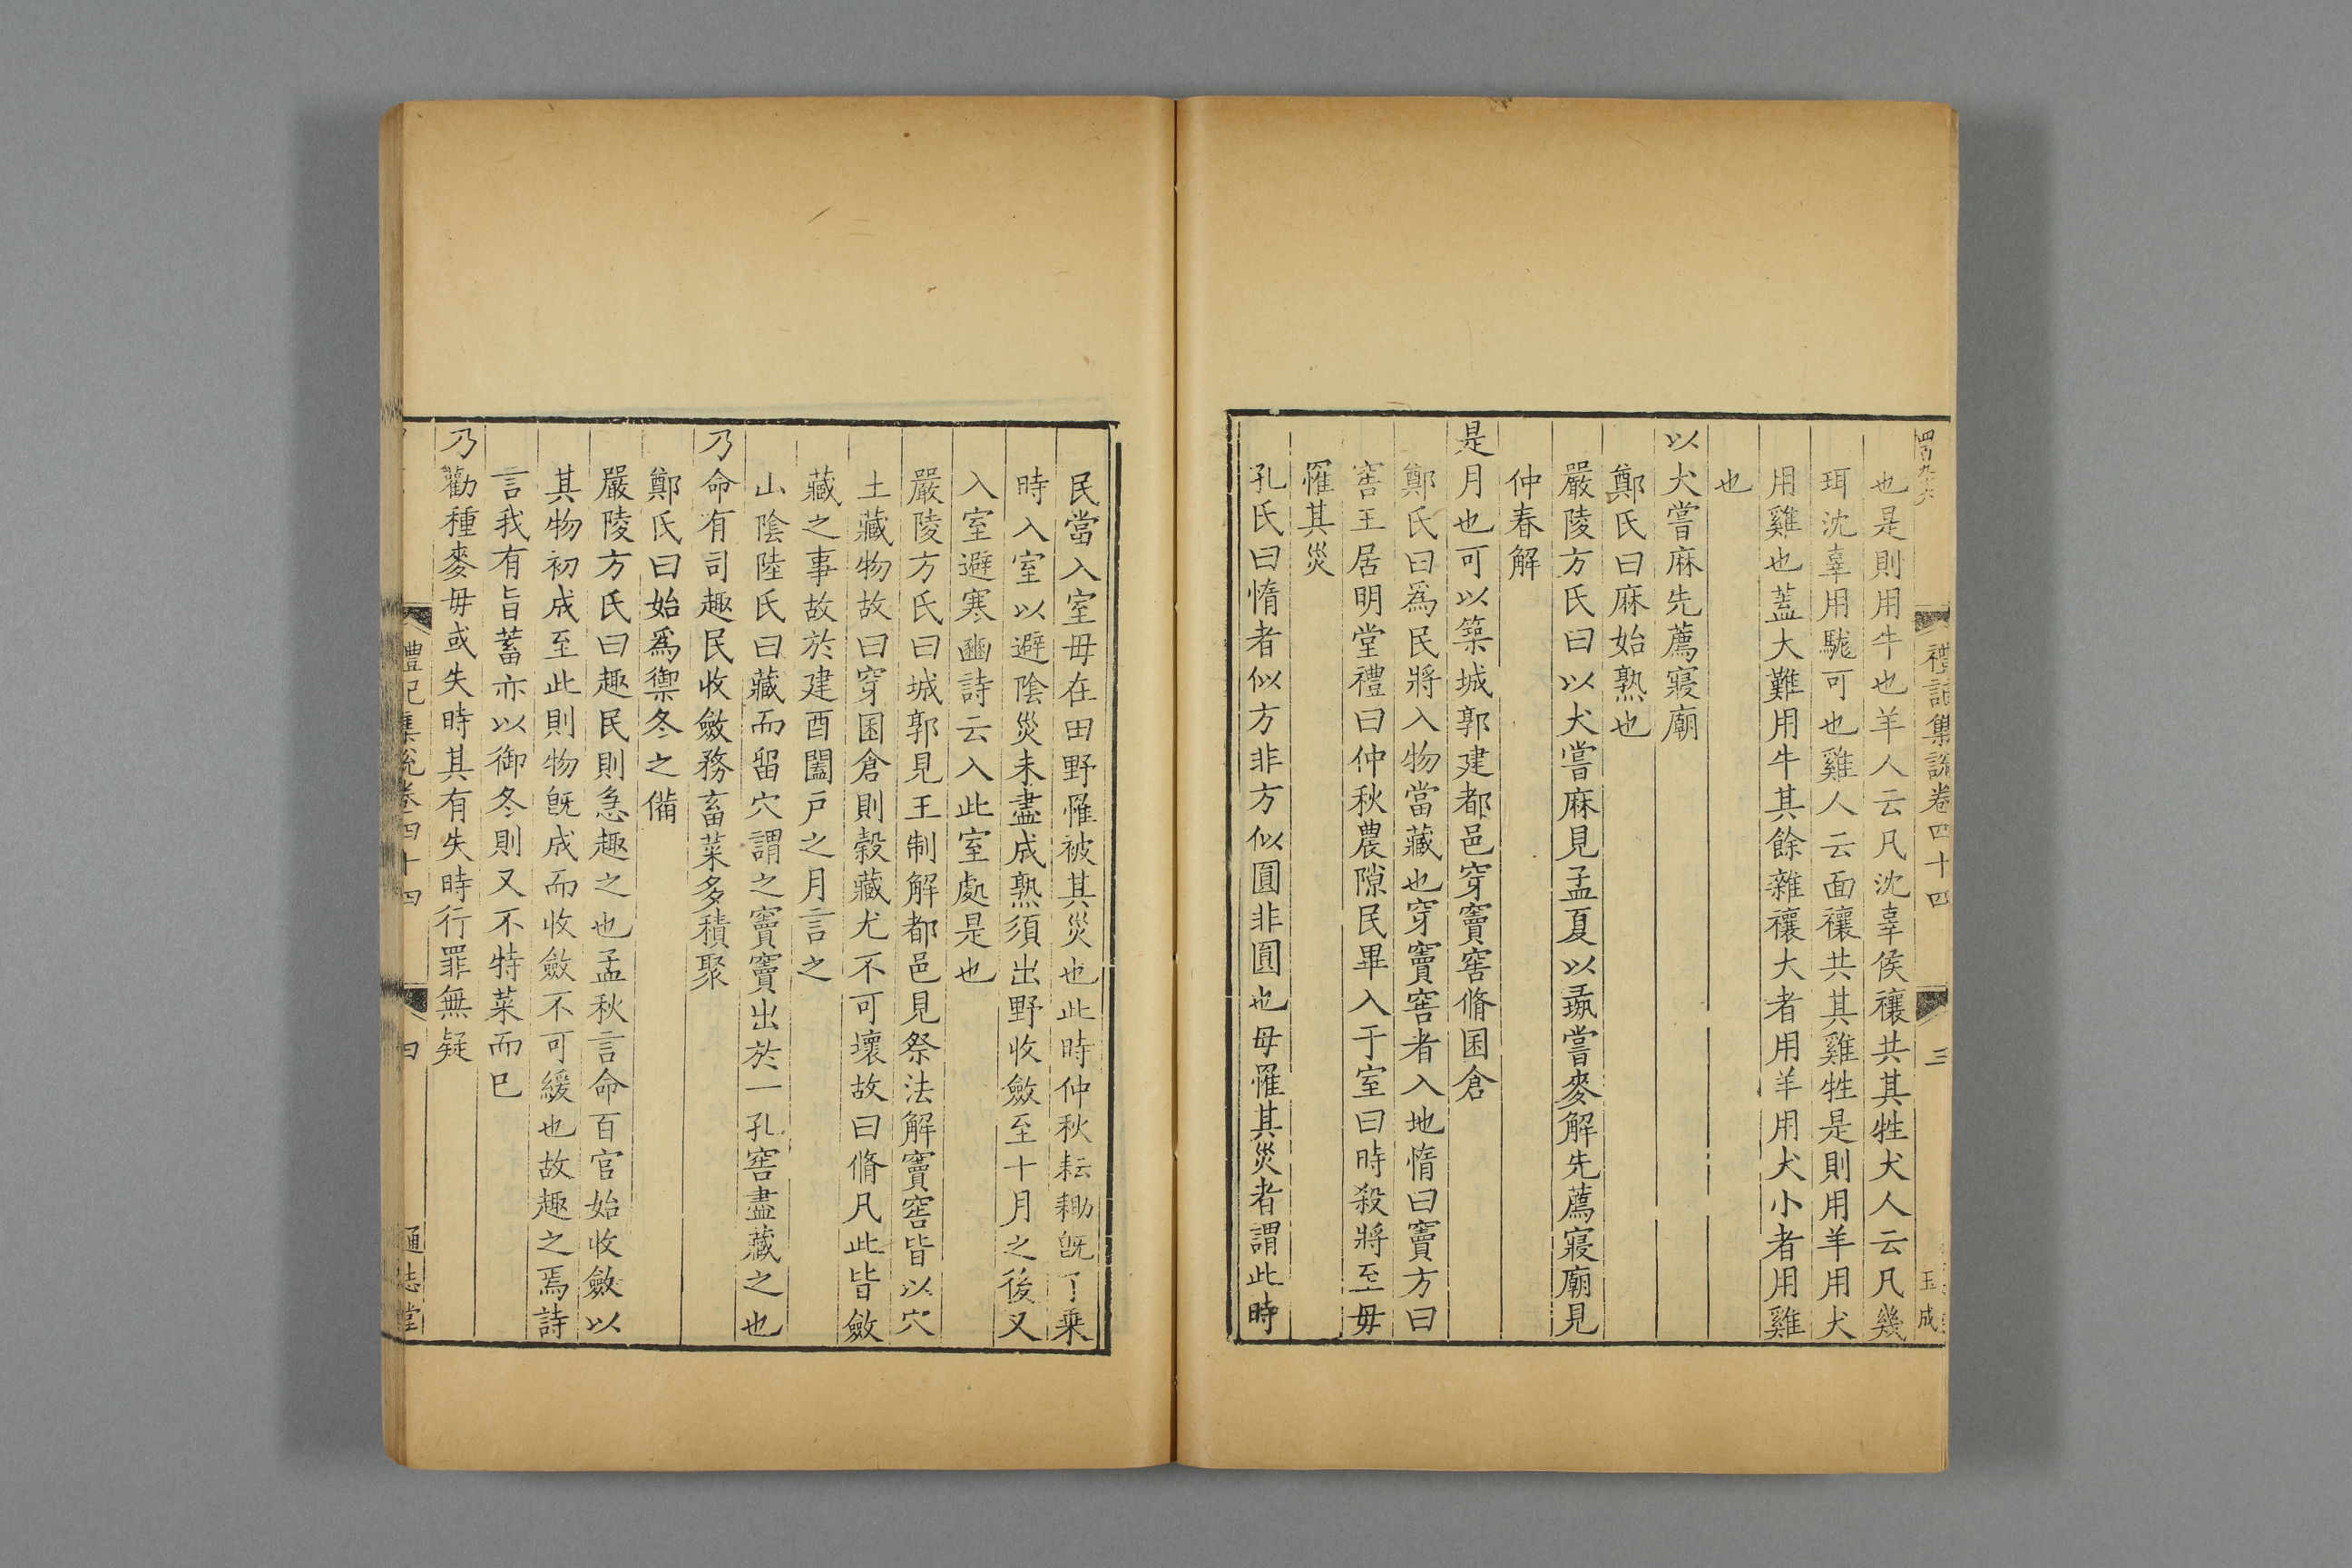 四百九十六
禮記集說卷四十四
三
玉成
也是則用牛也羊人云凡沈辜侯禳共其牲犬人云凡幾
珥沈辜用駹可也雞人云面禳共其雞牲是則用羊用犬
用雞也蓋大難用牛其餘雜禳大者用羊用犬小者用雞
也
以犬嘗麻先薦寢廟
鄭氏曰麻始熟也
嚴陵方氏曰以犬嘗麻見孟夏以彘嘗麥解先薦寢廟見
仲春解
是月也可以築城郭建都邑穿竇窖脩囷倉
鄭氏曰爲民將入物當藏也穿竇窖者入地惰曰竇方曰
窖王居明堂禮曰仲秋農隙民畢入于室曰時殺將至毋
罹其災
孔氏曰惰者似方非方似圓非圓也毋罹其災者謂此時
民當入室毋在田野罹被其災也此時仲秋耘耡旣了乗
時入室以避陰災未盡成熟須出野收斂至十月之後又
入室避寒豳詩云入此室處是也
嚴陵方氏曰城郭見王制解都邑見祭法解竇窖皆以穴
土藏物故曰穿囷倉則穀藏尤不可壞故曰脩凡此皆斂
藏之事故於建酉闔戸之月言之
山陰陸氏曰藏而留穴謂之竇竇出於一孔窖盡藏之也
乃命有司趣民收斂務畜菜多積聚
鄭氏曰始爲禦冬之備
嚴陵方氏曰趣民則急趣之也孟秋言命百官始收斂以
其物初成至此則物旣成而收斂不可緩也故趣之焉詩
言我有旨蓄亦以御冬則又不特菜而已
乃勸種麥毋或失時其有失時行罪無疑
禮記集說卷四十四
四
通志堂